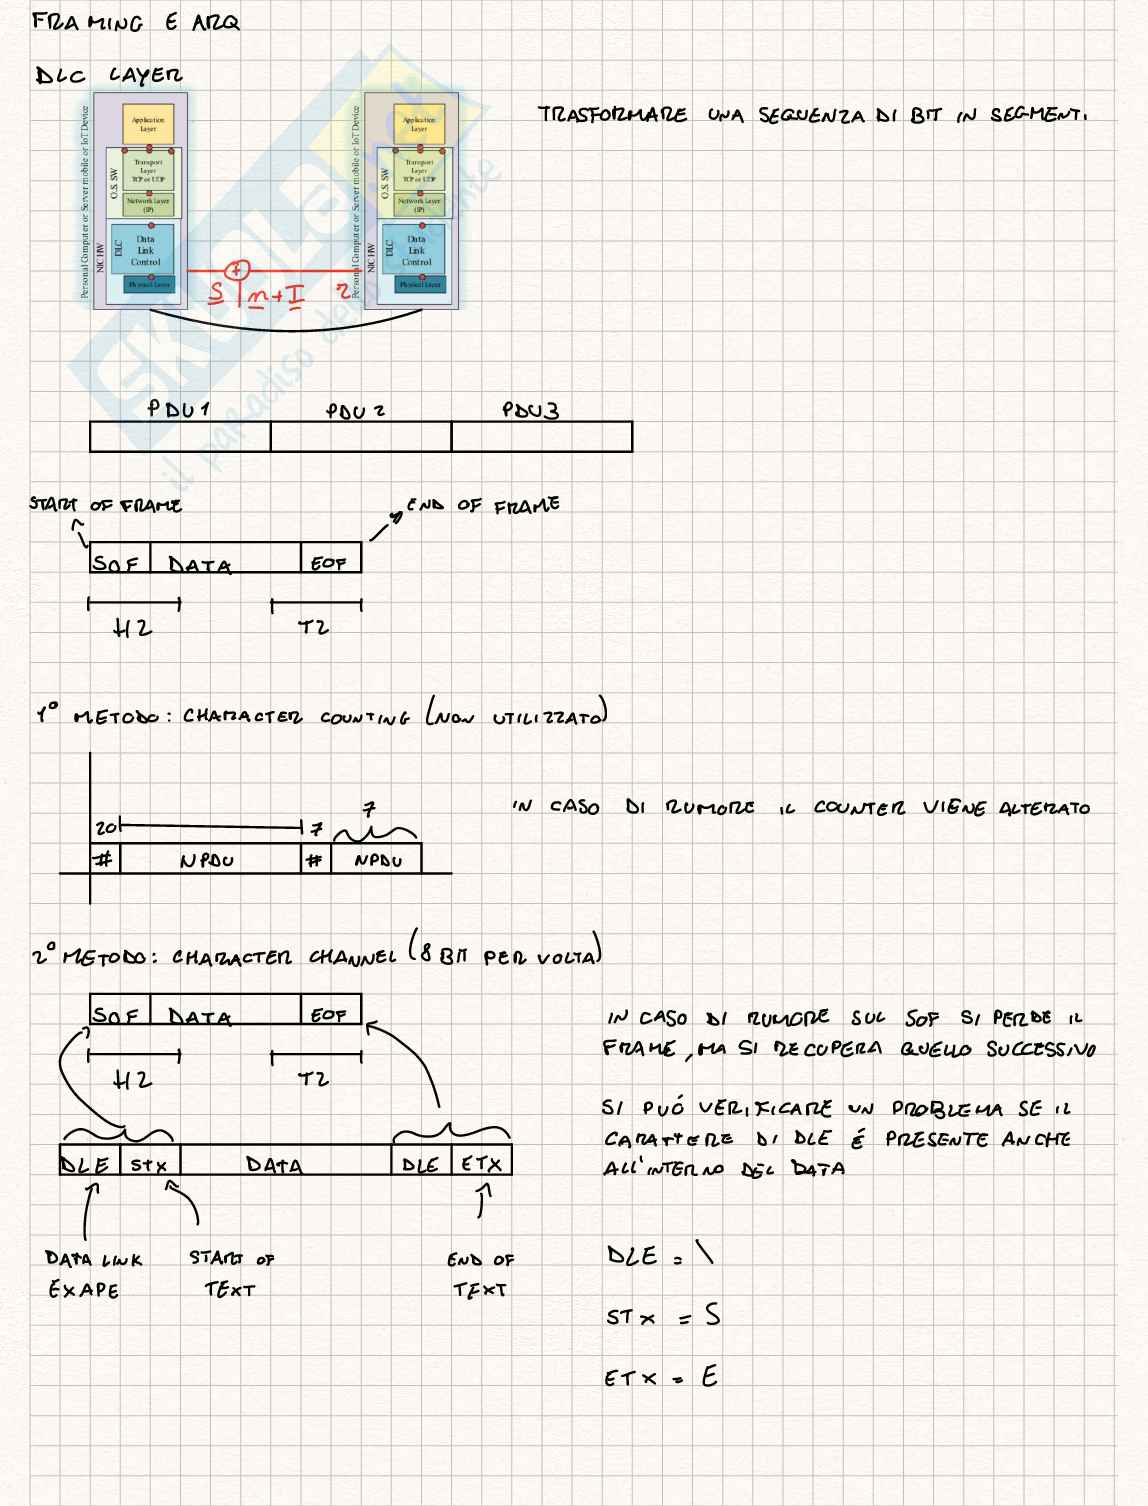 FRAMING E ARQ
DLC LAYER
TRASFORMARE UNA SEQUENZA DI BIT IN SEGMENTI
Personal Computer or Server mobile or IoT Device
Application Layer
O.S. SW
Transport Layer TCP or UDP
Network Layer (IP)
NIC HW
DLC
Data Link Control
Physical Layer
Personal Computer or Server mobile or IoT Device
Application Layer
O.S. SW
Transport Layer TCP or UDP
Network Layer (IP)
NIC HW
DLC
Data Link Control
Physical Layer
S n + I r
SKUOLA.net
il paradiso dello studente
PDU 1 PDU 2 PDU 3
START OF FRAME END OF FRAME
SOF DATA EOF
H2 T2
1° METODO: CHARACTER COUNTING (NON UTILIZZATO)
IN CASO DI RUMORE IL COUNTER VIENE ALTERATO
20 7 7
# NPDU # NPDU
2° METODO: CHARACTER CHANNEL (8 BIT PER VOLTA)
SOF DATA EOF
H2 T2
IN CASO DI RUMORE SUL SOF SI PERDE IL
FRAME, MA SI RECUPERA QUELLO SUCCESSIVO
SI PUÓ VERIFICARE UN PROBLEMA SE IL
CARATTERE DI DLE É PRESENTE ANCHE
ALL'INTERNO DEL DATA
DLE STX DATA DLE ETX
DATA LINK START OF END OF
EXAPE TEXT TEXT
DLE = \
STX = S
ETX = E